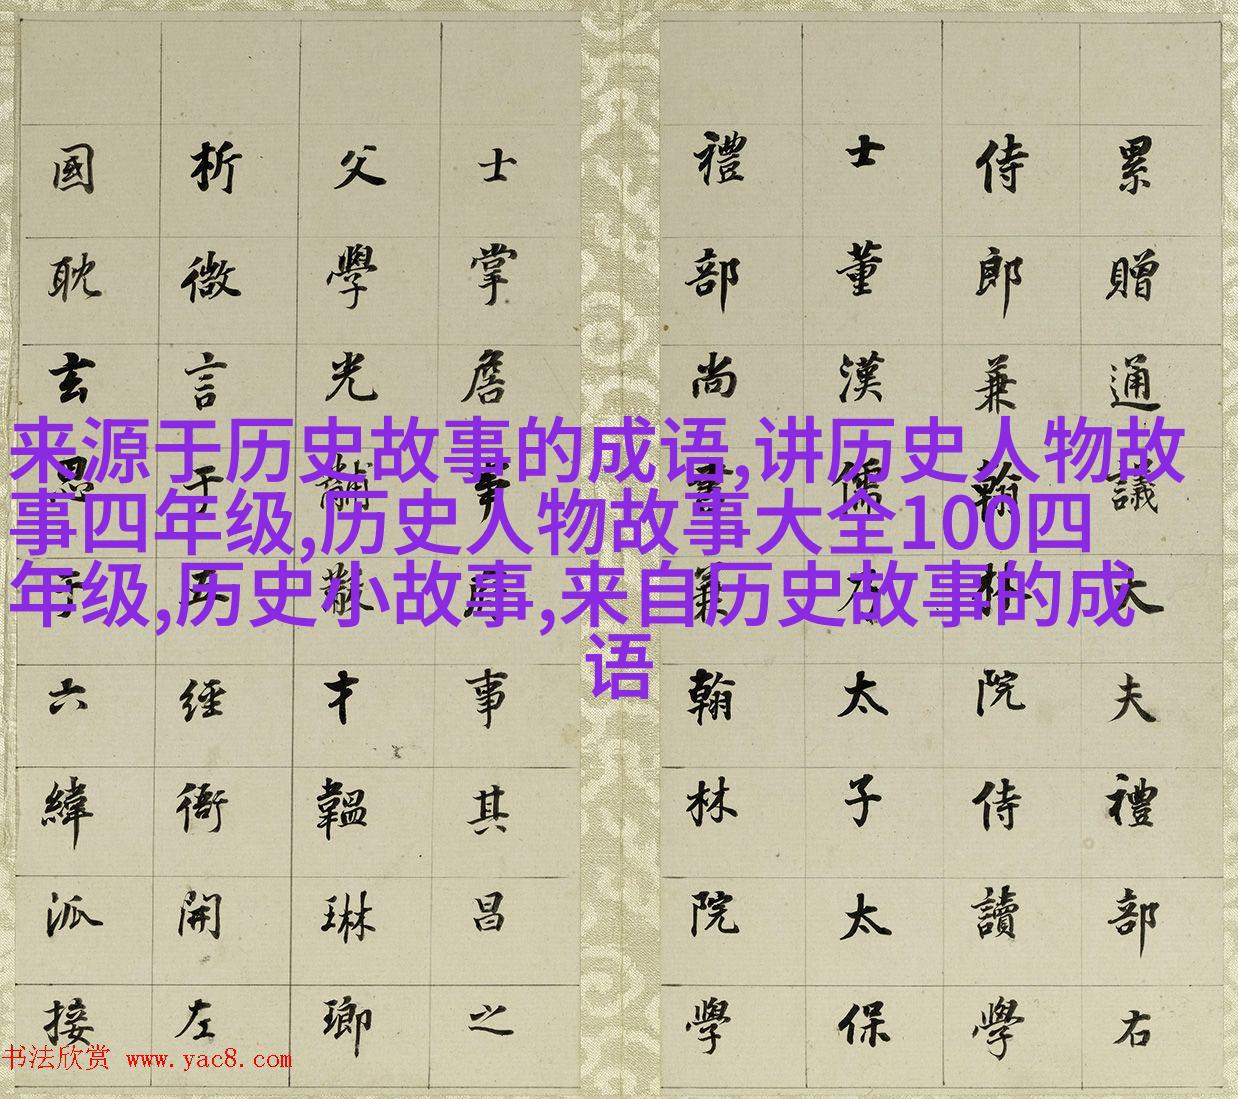 累贈通議大夫禮部右
侍郎兼翰林院侍讀學
士董漢儒太子太保
禮部尚書兼翰林院學
士掌詹事府事其昌之
父學光黼黻才韞琳瑯
析微言于五經衙開左
國耽玄思于六緯派接
来源于历史故事的成语,讲历史人物故
事四年级,历史人物故事大全100四
年级,历史小故事,来自历史故事的成
语
书法欣赏 www.yac8.com